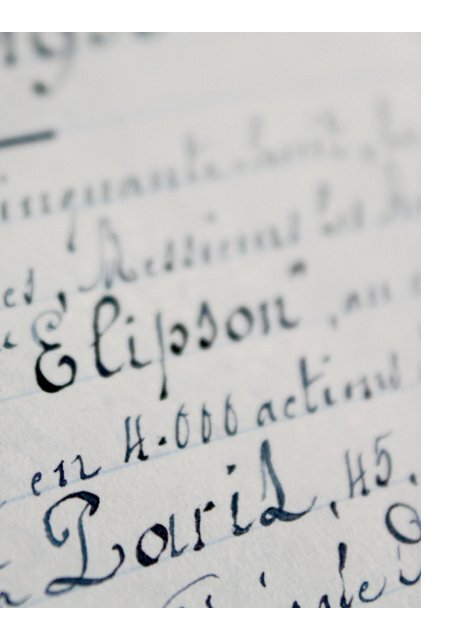 inquante huit, le
es, Messieurs les A
"Elipson", au c
en 4.000 actions
Paris, 45,